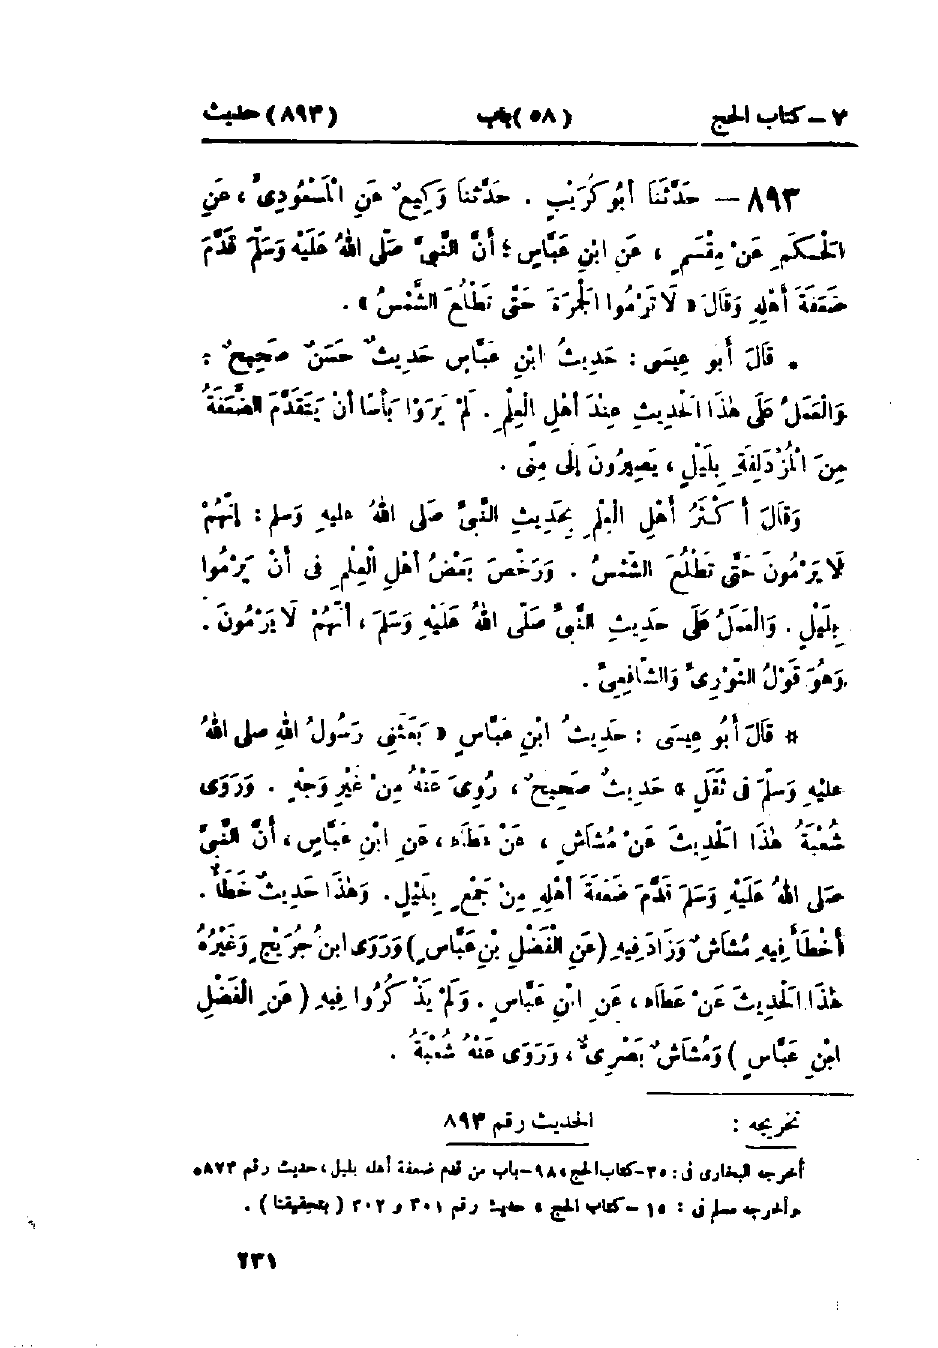 ٧ – كتاب الحج (٥٨) باب (٨٩٣) حديث
٨٩٣ – حَدَّثَنَا أَبُو كُرَيْبٍ . حَدَّثَنَا وَكِيعٌ عَنِ الْمَسْعُودِىِّ ، عَنِ
الْحَكَمِ عَنْ مِقْسَمٍ ، عَنِ ابْنِ عَبَّاسٍ ؛ أَنَّ النَّبِىَّ صَلَّى اللهُ عَلَيْهِ وَسَلَّمَ قَدَّمَ
ضَعَفَةَ أَهْلِهِ وَقَالَ « لَا تَرْمُوا الْجَمْرَةَ حَتَّى تَطْلُعَ الشَّمْسُ » .
* قَالَ أَبُو عِيسَى : حَدِيثُ ابْنِ عَبَّاسٍ حَدِيثٌ حَسَنٌ صَحِيحٌ :
وَالْعَمَلُ عَلَى هٰذَا الْحَدِيثِ عِنْدَ أَهْلِ الْعِلْمِ . لَمْ يَرَوْا بَأْسًا أَنْ يَتَقَدَّمَ الضَّعَفَةُ
مِنَ الْمُزْدَلِفَةِ بِلَيْلٍ ، يَصِيرُونَ إِلَى مِنًى .
وَقَالَ أَكْثَرُ أَهْلِ الْعِلْمِ بِحَدِيثِ النَّبِىِّ صَلى اللهُ عليهِ وَسَلم : إِنَّهُمْ
لَا يَرْمُونَ حَتَّى تَطْلُعَ الشَّمْسُ . وَرَخَّصَ بَعْضُ أَهْلِ الْعِلْمِ فِى أَنْ يَرْمُوا
بِلَيْلٍ . وَالْعَمَلُ عَلَى حَدِيثِ النَّبِىِّ صَلَّى اللهُ عَلَيْهِ وَسَلَّمَ ، أَنَّهُمْ لَا يَرْمُونَ .
وَهُوَ قَوْلُ الثَّوْرِىِّ وَالشَّافِعِىِّ .
* قَالَ أَبُو عِيسَى : حَدِيثُ ابْنِ عَبَّاسٍ « بَعَثَنِى رَسُولُ اللهِ صلى اللهُ
عليْهِ وَسَلَّمَ فِى ثَقَلٍ » حَدِيثٌ صَحِيحٌ ، رُوِىَ عَنْهُ مِنْ غَيْرِ وَجْهٍ . وَرَوَى
شُعْبَةُ هٰذَا الْحَدِيثَ عَنْ مُشَاشٍ ، عَنْ عَطَاء ، عَنِ ابْنِ عَبَّاسٍ ، أَنَّ النَّبِىَّ
صَلى اللهُ عَلَيْهِ وَسَلمَ قَدَّمَ ضَعَفَةَ أَهْلِهِ مِنْ جَمْعٍ بِلَيْلٍ . وَهٰذَا حَدِيثٌ خَطَأٌ .
أَخْطَأَ فِيهِ مُشَاشٌ وَزَادَ فِيهِ (عَنِ الْفَضْلِ بْنِ عَبَّاسٍ) وَرَوَى ابنُ جُرَيْجٍ وَغَيْرُهُ
هٰذَا الْحَدِيثَ عَنْ عَطَاء ، عَنِ ابْنِ عَبَّاسٍ . وَلَمْ يَذْكُرُوا فِيهِ ( عَنِ الْفَضْلِ
ابْنِ عَبَّاسٍ ) وَمُشَاشٌ بَصْرِىٌّ ، وَرَوَى عَنْهُ شُعْبَةُ .
تخريجه : الحديث رقم ٨٩٣
أخرجه البخارى فى : ٢٥–كتاب الحج ، ٩٨–باب من قدم ضعفة أهله بليل ، حديث رقم ٨٧٣٠
وأخرجه مسلم فى : ١٥ – كتاب الحج ، حديث رقم ٣٠١ و ٣٠٢ ( بتحقيقنا ) .
٢٣١